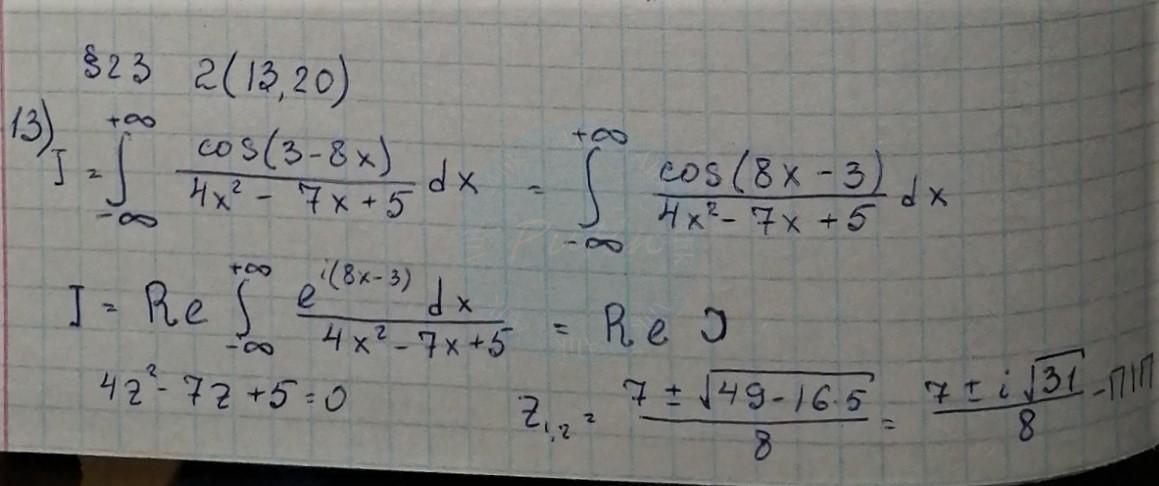 §23 2(13,20)
13) I = ∫_{-∞}^{+∞} cos(3-8x)/(4x² - 7x + 5) dx = ∫_{-∞}^{+∞} cos(8x-3)/(4x² - 7x + 5) dx
I = Re ∫_{-∞}^{+∞} e^{i(8x-3)} dx/(4x² - 7x + 5) = Re J
4z² - 7z + 5 = 0 z_{1,2} = (7 ± √(49-16·5))/8 = (7 ± i√31)/8 - П1П